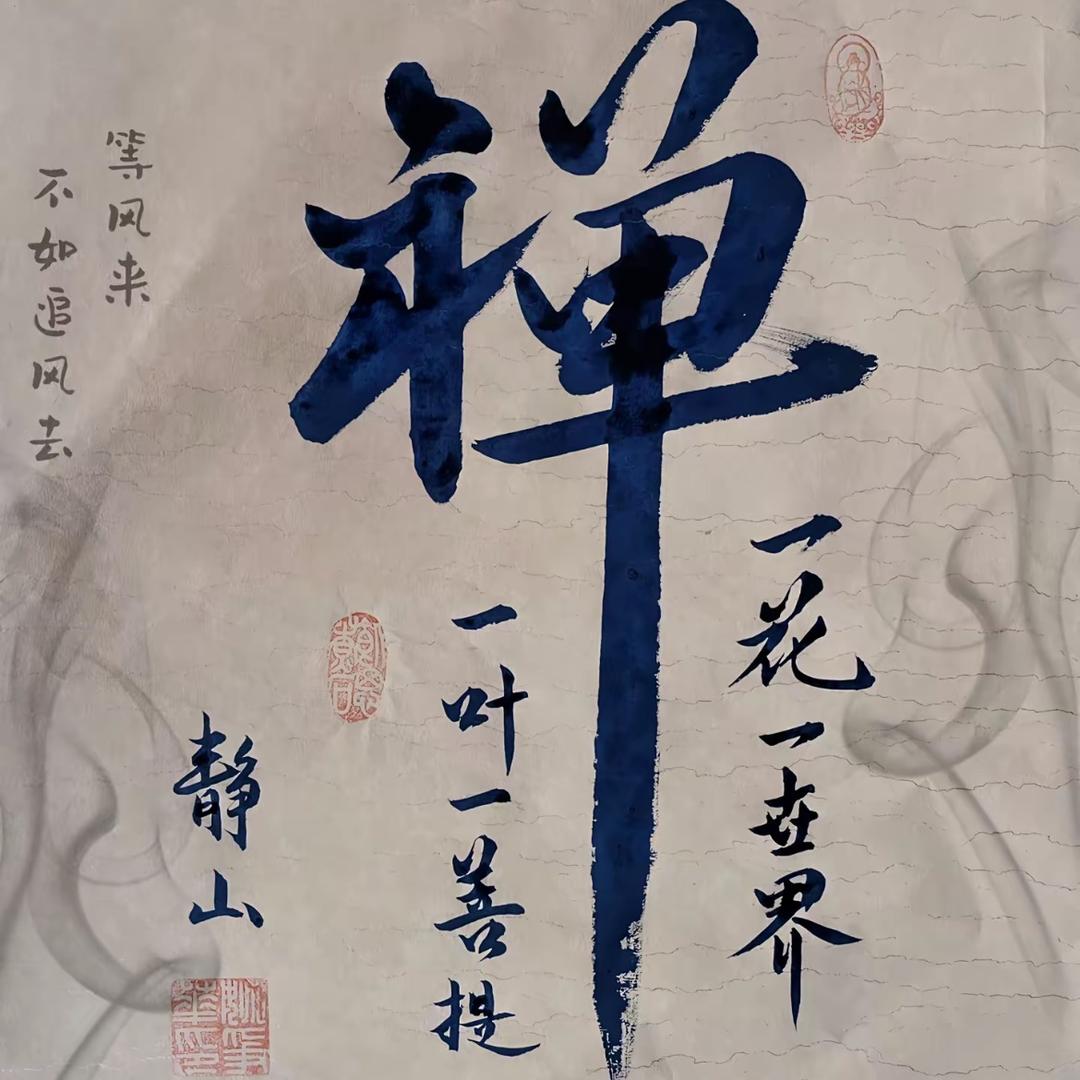 禅
一花一世界
一叶一菩提
静山
等风来
不如追风去